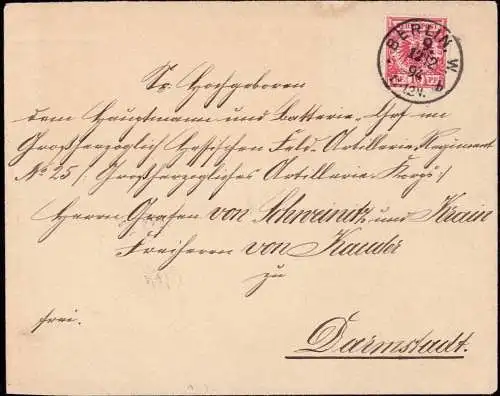 BERLIN W
9
12
94
12V.
b
Sr. Hochgeboren
dem Hauptmann und Batterie-Chef im
Großherzoglich Hessischen Feld-Artillerie-Regiment
No 25 /: Großherzogliches Artillerie-Korps :/
Herrn Grafen von Schweinitz und Krain
Freiherrn von Kauder
zu
frei.
Darmstadt.